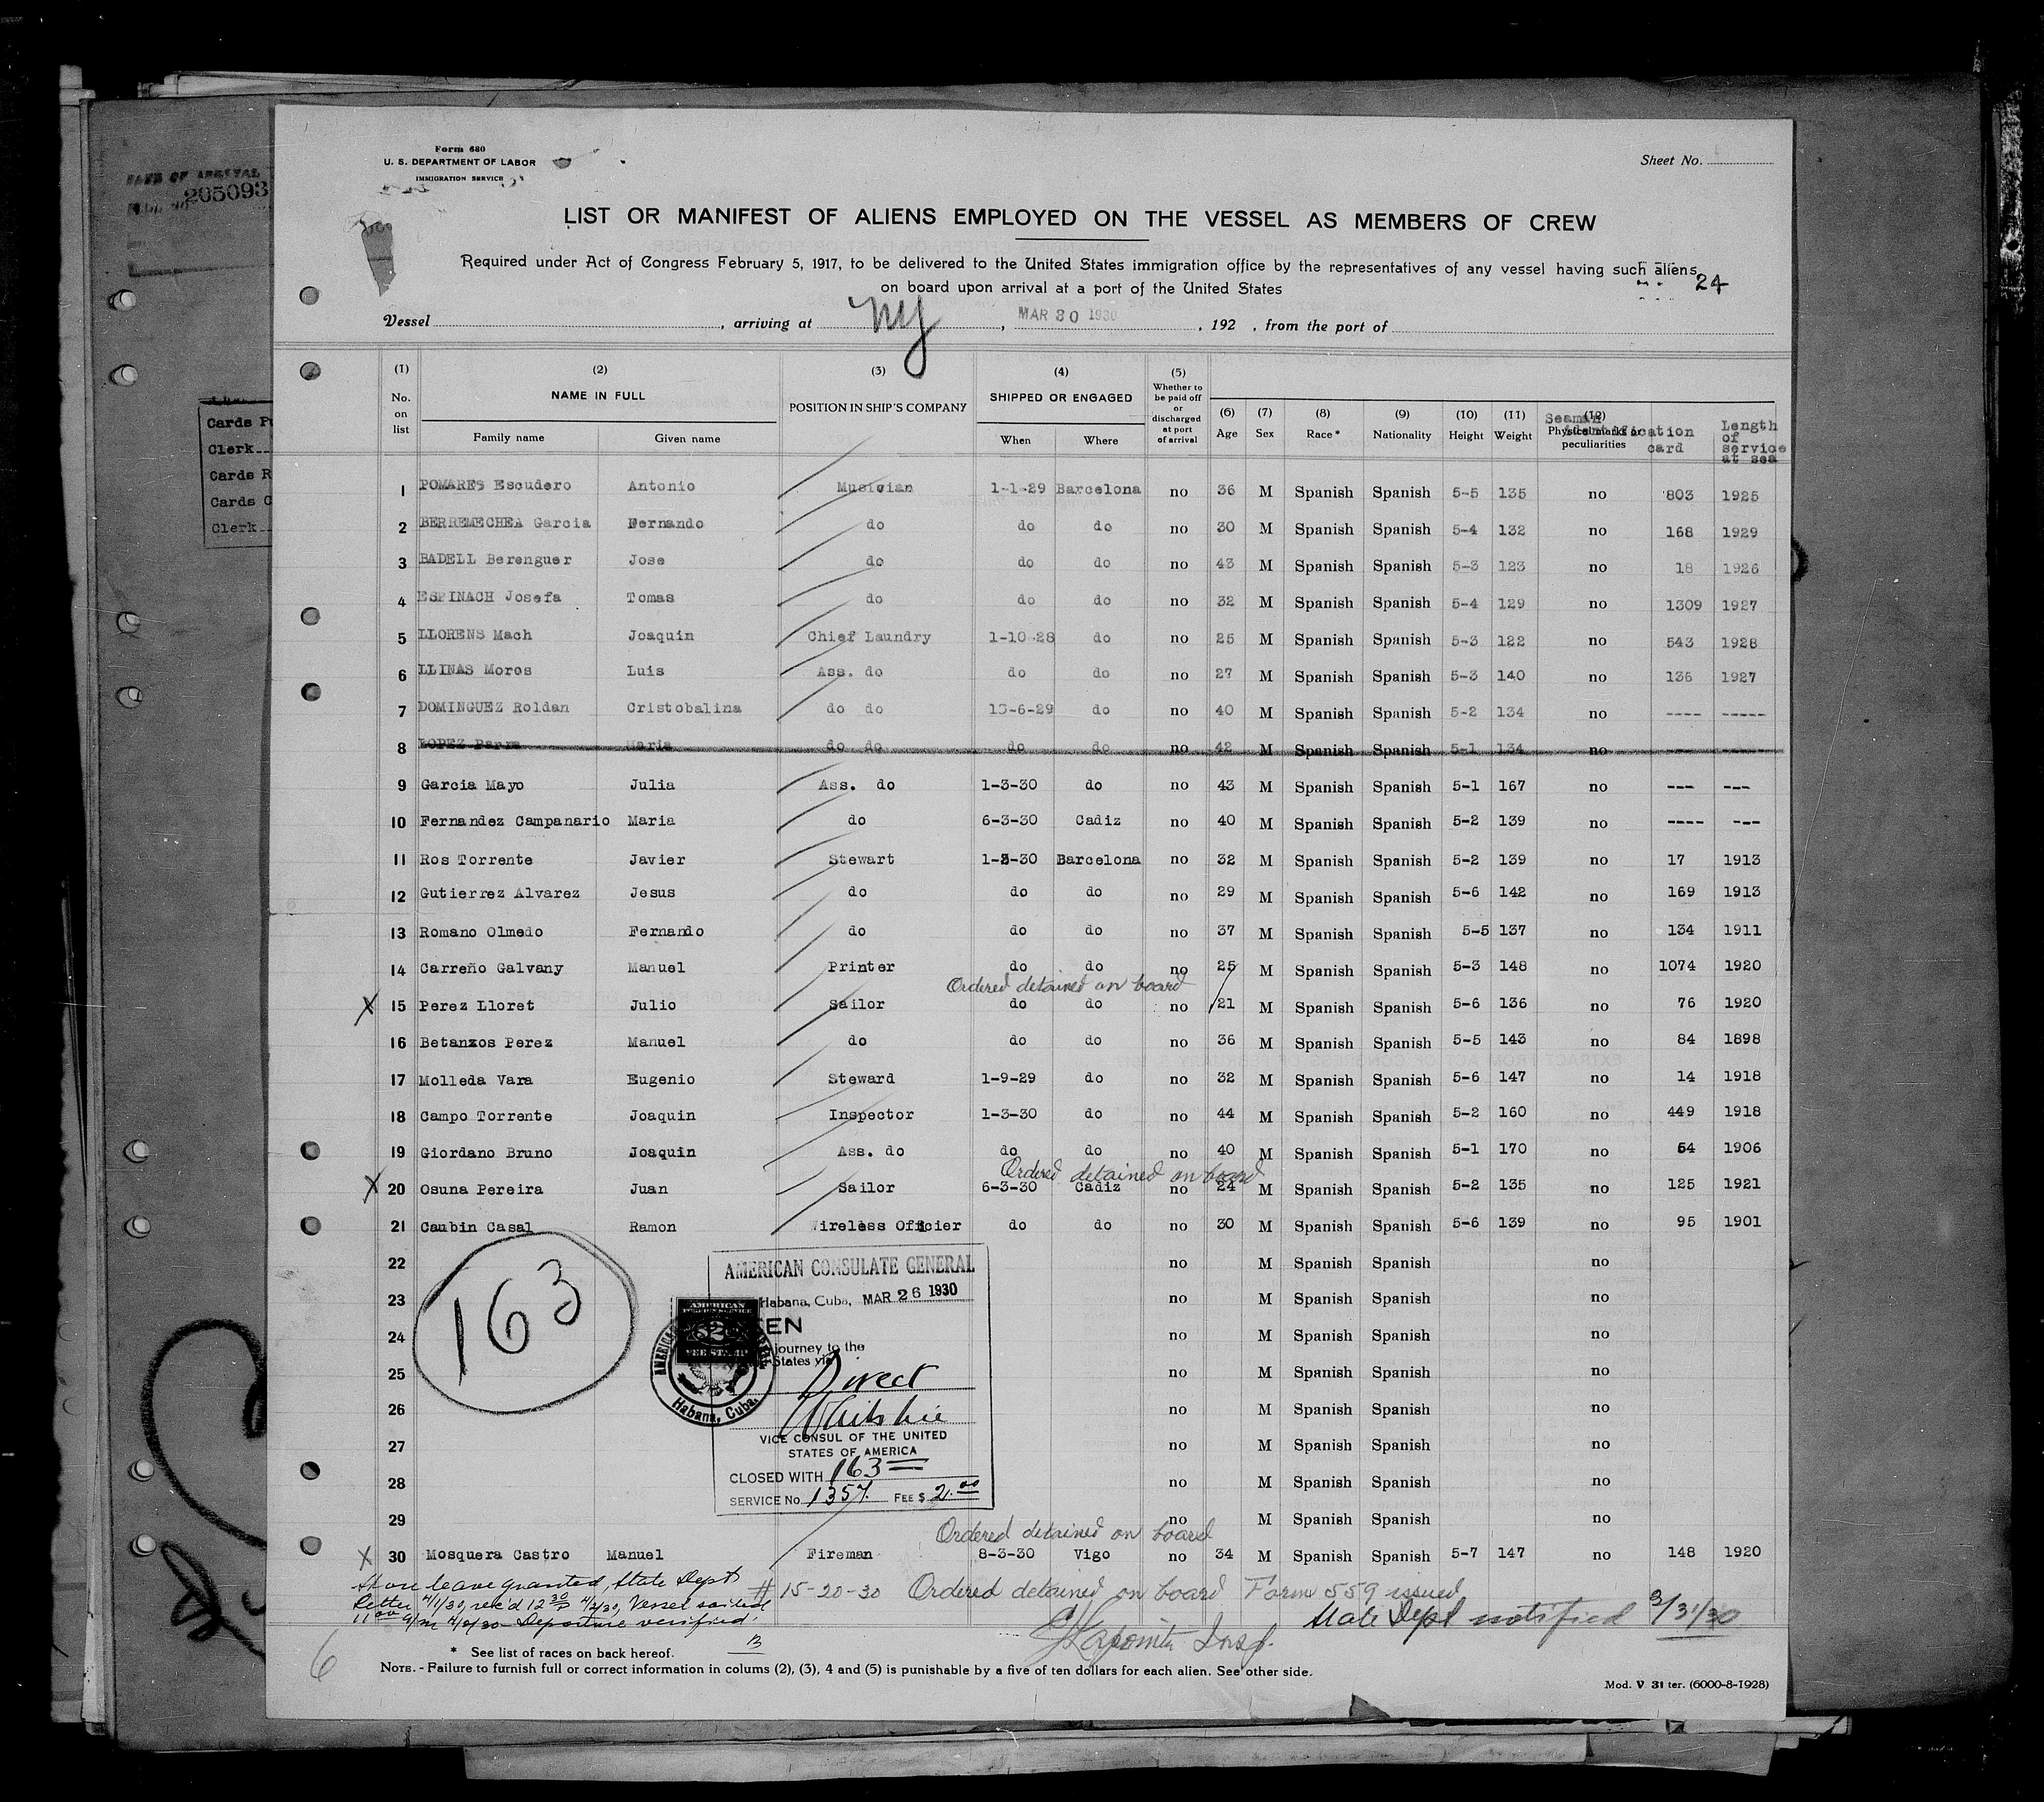 Form 680
U. S. DEPARTMENT OF LABOR
IMMIGRATION SERVICE
Sheet No.
205093
LIST OR MANIFEST OF ALIENS EMPLOYED ON THE VESSEL AS MEMBERS OF CREW
Required under Act of Congress February 5, 1917, to be delivered to the United States immigration office by the representatives of any vessel having such aliens
on board upon arrival at a port of the United States
24
Vessel , arriving at NY , MAR 30 1930 , 192 , from the port of
(1) No. on list (2) NAME IN FULL Family name Given name (3) POSITION IN SHIP'S COMPANY (4) SHIPPED OR ENGAGED When Where (5) Whether to be paid off or discharged at port of arrival (6) Age (7) Sex (8) Race * (9) Nationality (10) Height (11) Weight (12) Physical marks or peculiarities Seaman identification card Length of service at sea
1 POMARES Escudero Antonio Musician 1-1-29 Barcelona no 36 M Spanish Spanish 5-5 135 no 803 1925
2 BERREMECHEA Garcia Fernando do do do no 30 M Spanish Spanish 5-4 132 no 168 1929
3 BADELL Berenguer Jose do do do no 43 M Spanish Spanish 5-3 123 no 18 1926
4 ESPINACH Josefa Tomas do do do no 32 M Spanish Spanish 5-4 129 no 1309 1927
5 LLORENS Mach Joaquin Chief Laundry 1-10-28 do no 25 M Spanish Spanish 5-3 122 no 543 1928
6 LLINAS Moros Luis Ass. do do do no 27 M Spanish Spanish 5-3 140 no 136 1927
7 DOMINGUEZ Roldan Cristobalina do do 13-6-29 do no 40 M Spanish Spanish 5-2 134 no ---- -----
8 LOPEZ Parra Maria do do do do no 42 M Spanish Spanish 5-1 134 no
9 Garcia Mayo Julia Ass. do 1-3-30 do no 43 M Spanish Spanish 5-1 167 no --- ---
10 Fernandez Campanario Maria do 6-3-30 Cadiz no 40 M Spanish Spanish 5-2 139 no ---- ---
11 Ros Torrente Javier Stewart 1-3-30 Barcelona no 32 M Spanish Spanish 5-2 139 no 17 1913
12 Gutierrez Alvarez Jesus do do do no 29 M Spanish Spanish 5-6 142 no 169 1913
13 Romano Olmedo Fernando do do do no 37 M Spanish Spanish 5-5 137 no 134 1911
14 Carreño Galvany Manuel Printer do do no 25 M Spanish Spanish 5-3 148 no 1074 1920
Ordered detained on board
X 15 Perez Lloret Julio Sailor do do no 21 M Spanish Spanish 5-6 136 no 76 1920
16 Betanzos Perez Manuel do do do no 36 M Spanish Spanish 5-5 143 no 84 1898
17 Molleda Vara Eugenio Steward 1-9-29 do no 32 M Spanish Spanish 5-6 147 no 14 1918
18 Campo Torrente Joaquin Inspector 1-3-30 do no 44 M Spanish Spanish 5-2 160 no 449 1918
19 Giordano Bruno Joaquin Ass. do do do no 40 M Spanish Spanish 5-1 170 no 54 1906
Ordered detained on board
X 20 Osuna Pereira Juan Sailor 6-3-30 Cadiz no 24 M Spanish Spanish 5-2 135 no 125 1921
21 Caubin Casal Ramon Wireless Officier do do no 30 M Spanish Spanish 5-6 139 no 95 1901
22 no M Spanish Spanish no
23 no M Spanish Spanish no
24 no M Spanish Spanish no
25 no M Spanish Spanish no
26 no M Spanish Spanish no
27 no M Spanish Spanish no
28 no M Spanish Spanish no
29 no M Spanish Spanish no
163
AMERICAN CONSULATE GENERAL
Habana, Cuba, MAR 26 1930
journey to the
States via
Direct
VICE CONSUL OF THE UNITED
STATES OF AMERICA
CLOSED WITH 163
SERVICE No 1357 FEE $ 2.00
AMERICAN
FOREIGN SERVICE
$2
FEE STAMP
Habana, Cuba.
Ordered detained on board
X 30 Mosquera Castro Manuel Fireman 8-3-30 Vigo no 34 M Spanish Spanish 5-7 147 no 148 1920
Shore leave granted, State Dept
letter 4/1/30, rec'd 12 30 P 4/2/30, Vessel sailed
Departure verified
# 15-20-30 Ordered detained on board Form 559 issued
State Dept notified 3/31/30
Insp.
6
* See list of races on back hereof.
NOTE. - Failure to furnish full or correct information in colums (2), (3), 4 and (5) is punishable by a five of ten dollars for each alien. See other side.
Mod. V 31 ter. (6000-8-1928)
Cards
Clerk
Cards R
Cards C
Clerk